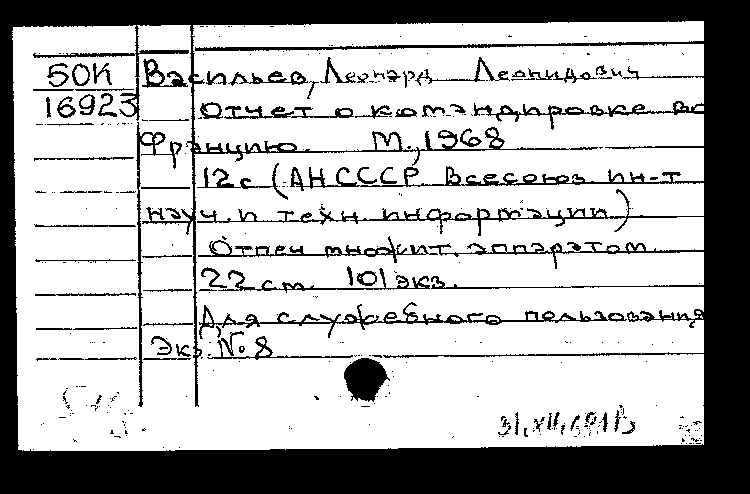 50К Васильев, Леонард Леонидович
16923 Отчет о командировке во
Францию. М., 1968
12 с (АН СССР Всесоюз ин-т
науч. и техн. информации)
Отпеч множит. аппаратом
22 см. 101 экз.
Для служебного пользования
Экз. № 8
31.XII.69